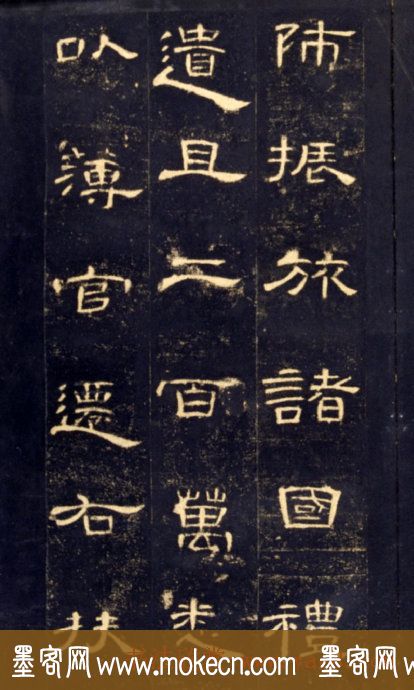 師振旅諸國禮
遺且二百萬悉
以薄官遷右扶
墨客网 www.mokecn.com 墨客网